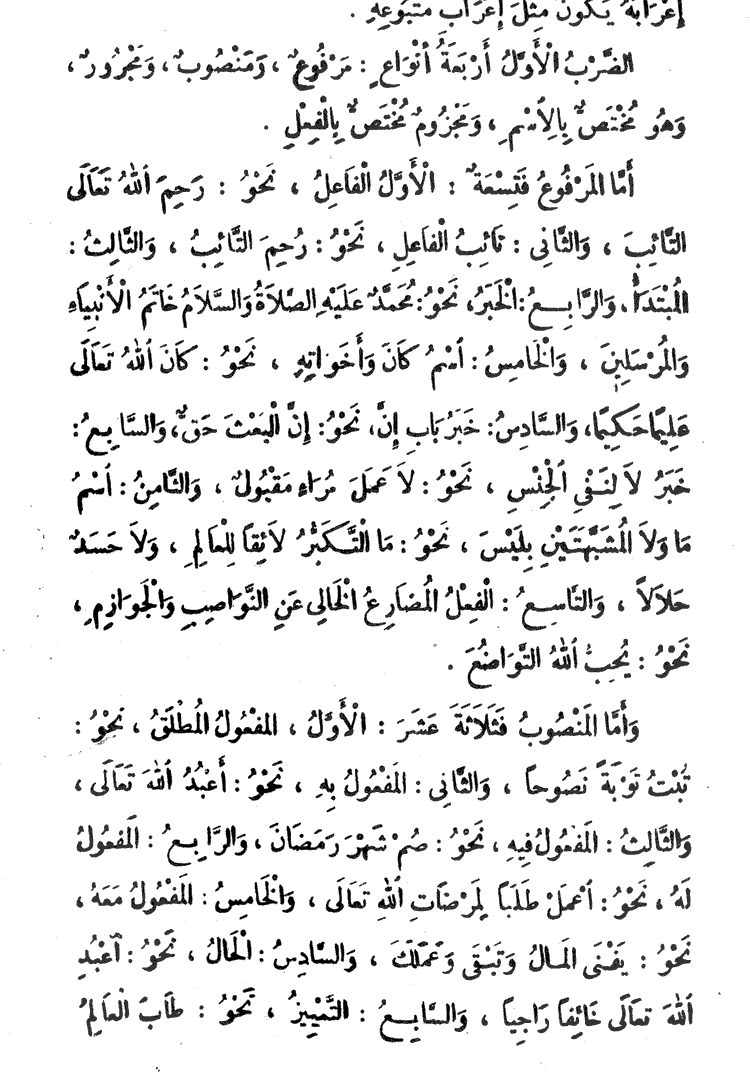 إِعْرَابُهُ يَكُونُ مِثْلَ إِعْرَابِ مَتْبُوعِهِ .
الضَّرْبُ الْأَوَّلُ أَرْبَعَةُ أَنْوَاعٍ : مَرْفُوعٌ ، وَمَنْصُوبٌ ، وَمَجْرُورٌ ،
وَهُوَ مُخْتَصٌّ بِالِاسْمِ ، وَمَجْزُومٌ مُخْتَصٌّ بِالْفِعْلِ .
أَمَّا الْمَرْفُوعُ فَتِسْعَةٌ : الْأَوَّلُ الْفَاعِلُ ، نَحْوُ : رَحِمَ اللهُ تَعَالَى
التَّائِبَ ، وَالثَّانِى : نَائِبُ الْفَاعِلِ ، نَحْوُ : رُحِمَ التَّائِبُ ، وَالثَّالِثُ :
الْمُبْتَدَأُ ، وَالرَّابِعُ : الْخَبَرُ ، نَحْوُ : مُحَمَّدٌ عَلَيْهِ الصَّلَاةُ وَالسَّلَامُ خَاتَمُ الْأَنْبِيَاءِ
وَالْمُرْسَلِينَ ، وَالْخَامِسُ : اسْمُ كَانَ وَأَخَوَاتِهِ ، نَحْوُ : كَانَ اللهُ تَعَالَى
عَلِيمًا حَكِيمًا ، وَالسَّادِسُ : خَبَرُ بَابِ إِنَّ ، نَحْوُ : إِنَّ الْبَعْثَ حَقٌّ ، وَالسَّابِعُ :
خَبَرُ لَا لِنَفْىِ الْجِنْسِ ، نَحْوُ : لَا عَمَلَ مُرَاءٍ مَقْبُولٌ ، وَالثَّامِنُ : اسْمُ
مَا وَلَا الْمُشَبَّهَتَيْنِ بِلَيْسَ ، نَحْوُ : مَا التَّكَبُّرُ لَائِقًا لِلْعَالِمِ ، وَلَا حَسَدٌ
حَلَالًا ، وَالتَّاسِعُ : الْفِعْلُ الْمُضَارِعُ الْخَالِى عَنِ النَّوَاصِبِ وَالْجَوَازِمِ ،
نَحْوُ : يُحِبُّ اللهُ التَّوَاضُعَ .
وَأَمَّا الْمَنْصُوبُ فَثَلَاثَةَ عَشَرَ : الْأَوَّلُ ، الْمَفْعُولُ الْمُطْلَقُ ، نَحْوُ :
تُبْتُ تَوْبَةً نَصُوحاً ، وَالثَّانِى : الْمَفْعُولُ بِهِ ، نَحْوُ : أَعْبُدُ اللهَ تَعَالَى ،
وَالثَّالِثُ : الْمَفْعُولُ فِيهِ ، نَحْوُ : صُمْ شَهْرَ رَمَضَانَ ، وَالرَّابِعُ : الْمَفْعُولُ
لَهُ ، نَحْوُ : اعْمَلْ طَلَبًا لِمَرْضَاتِ اللهِ تَعَالَى ، وَالْخَامِسُ : الْمَفْعُولُ مَعَهُ ،
نَحْوُ : يَفْنَى الْمَالُ وَتَبْقَى وَعَمَلَكَ ، وَالسَّادِسُ : الْحَالُ ، نَحْوُ : اعْبُدِ
اللهَ تَعَالَى خَائِفاً رَاجِياً ، وَالسَّابِعُ : التَّمْيِيزُ ، نَحْوُ : طَابَ الْعَالِمُ